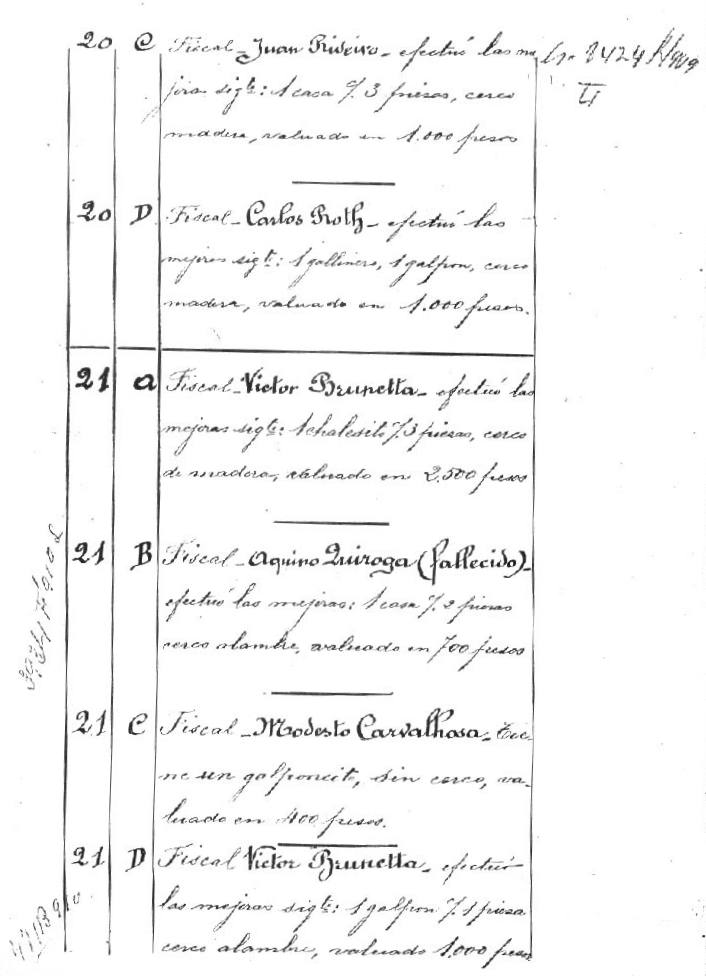 20 C Fiscal - Juan Ribeiro - efectuó las me
joras sigts: 1 casa % 3 piezas, cerco
madera, valuado en 1.000 pesos
20 D Fiscal - Carlos Roth - efectuó las
mejoras sigt: 1 gallinero, 1 galpon, cerco
madera, valuado en 1.000 pesos.
21 a Fiscal - Victor Brunetta - efectuó las
mejoras sigts: 1 chalesito % 3 piezas, cerco
de madera, valuado en 2.500 pesos
21 B Fiscal - Aquino Quiroga (fallecido) -
efectuó las mejoras: 1 casa % 2 piezas
cerco alambre, avaluado en 700 pesos
21 C Fiscal - Modesto Carvalhosa - Tie-
ne un galponcito, sin cerco, va-
luado en 400 pesos.
21 D Fiscal Victor Brunetta - efectuó
las mejoras sigts: 1 galpon % 1 pieza
cerco alambre, valuado 1.000 pesos